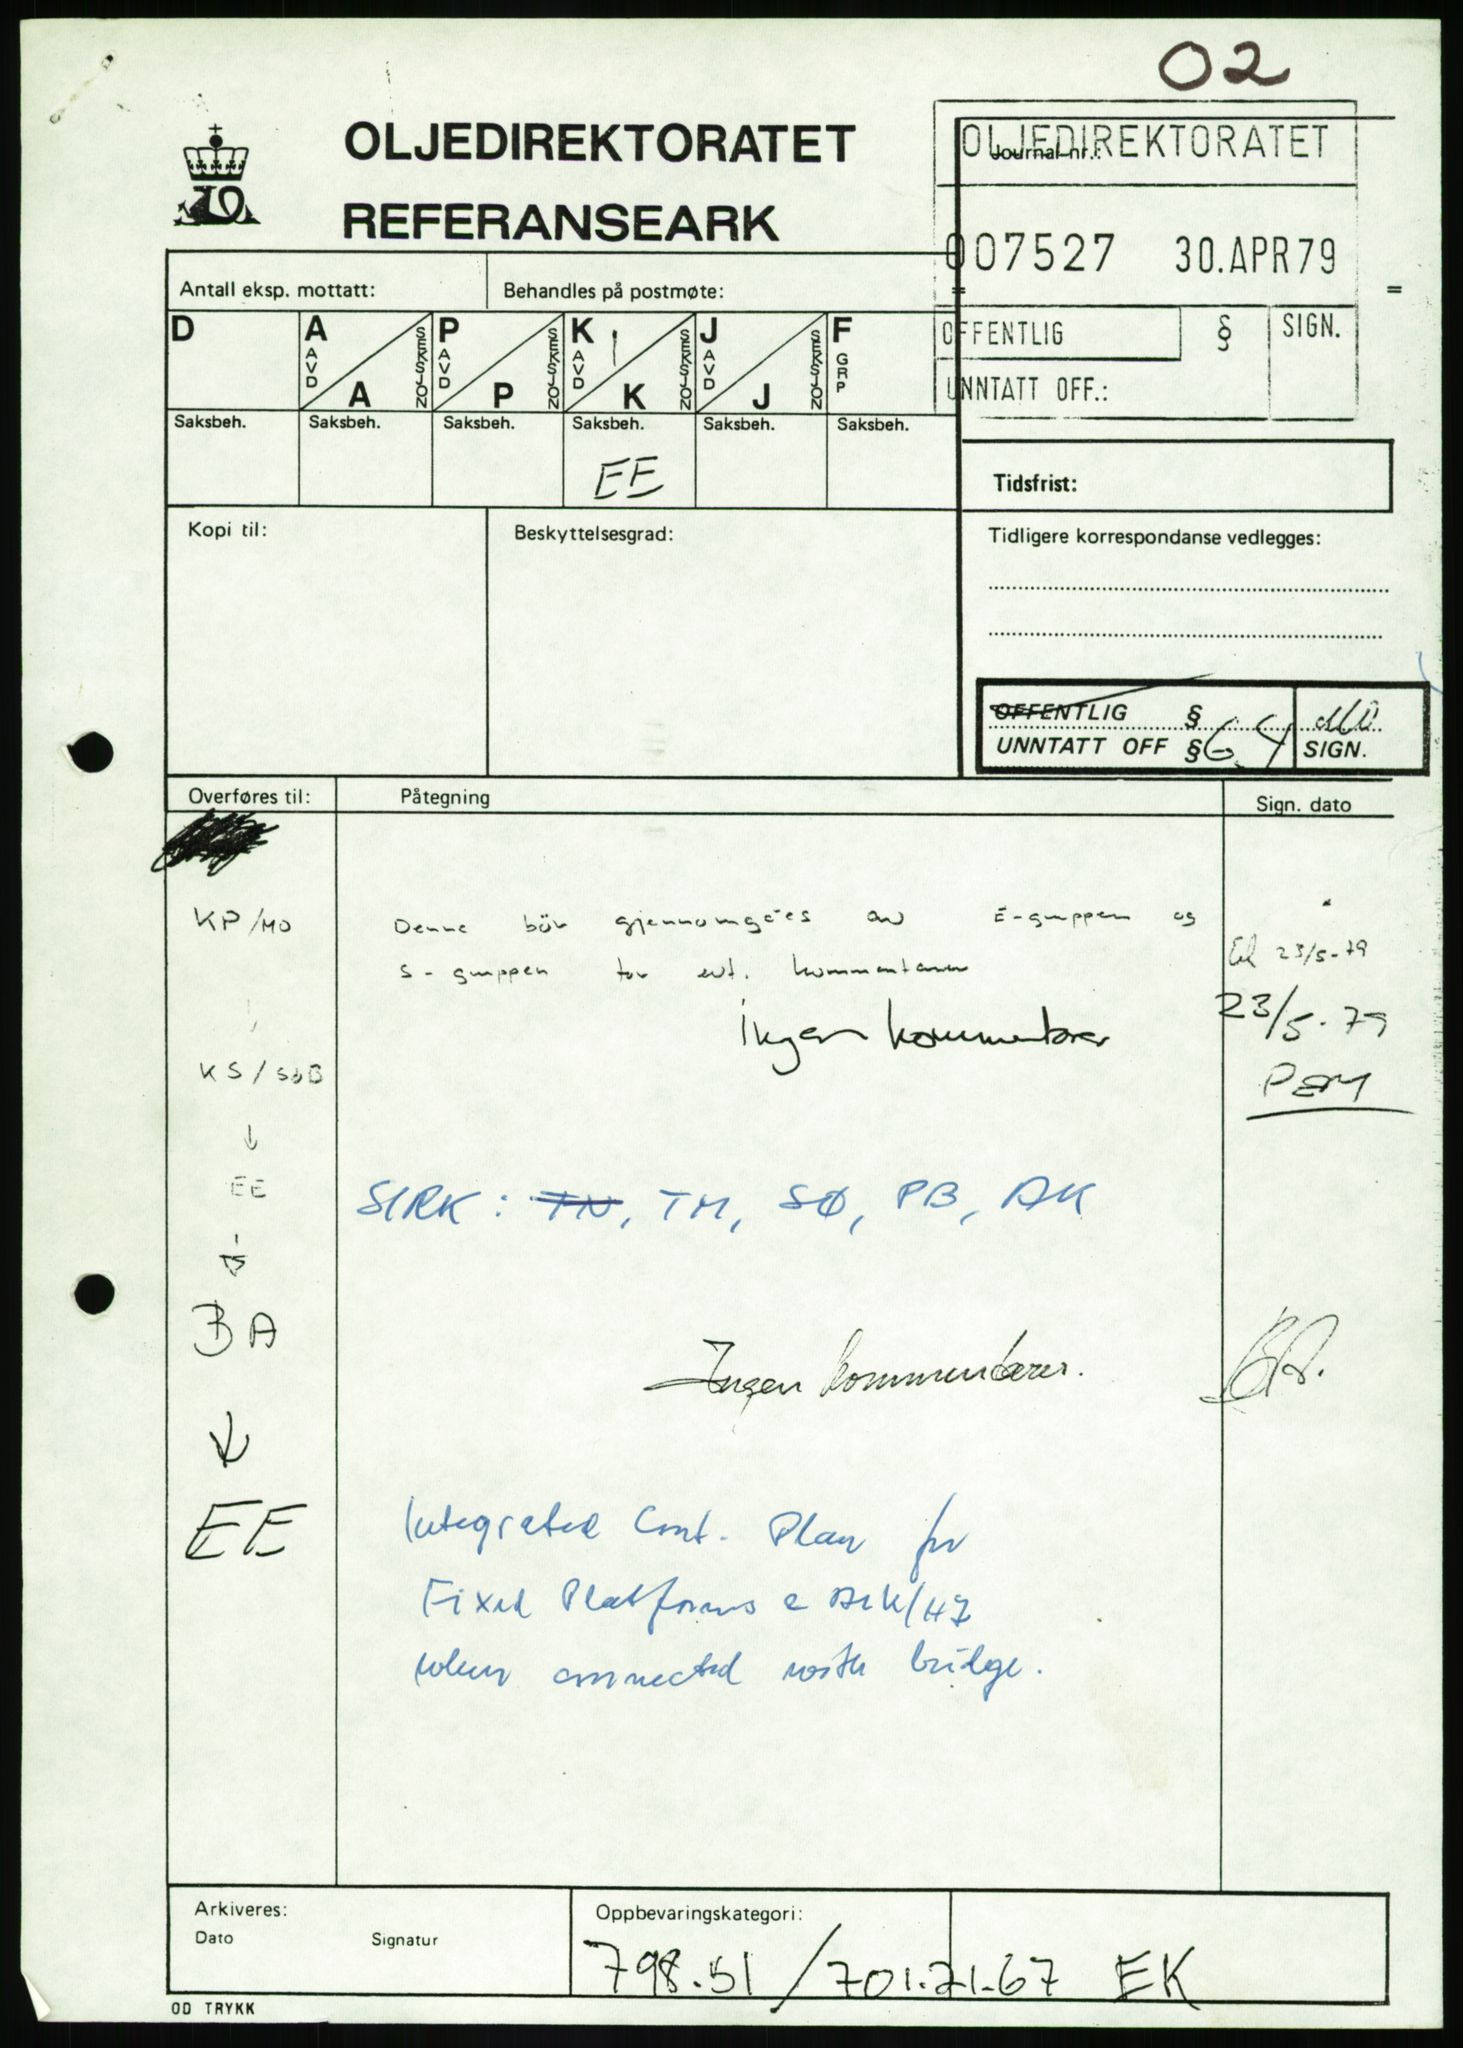 02
OLJEDIREKTORATET
REFERANSEARK
OLJEDIREKTORATET
Journal nr.:
007527 30.APR79
OFFENTLIG § SIGN.
UNNTATT OFF.:
Antall eksp. mottatt: Behandles på postmøte:
D A AVD SEKSJON A P AVD SEKSJON P K AVD SEKSJON K J AVD SEKSJON J F GRP
Saksbeh. Saksbeh. Saksbeh. Saksbeh. Saksbeh. Saksbeh.
EE
Tidsfrist:
Kopi til: Beskyttelsesgrad: Tidligere korrespondanse vedlegges:
OFFENTLIG §
UNNTATT OFF § 6.4 SIGN.
Overføres til: Påtegning Sign. dato
KP/MO Denne bör gjennomgåes av E-gruppen og
S-gruppen for evt. kommentarer 23/5-79
Ingen kommentarer 23/5-79
KS/SdB PEM
↓
EE
SIRK: TN, TM, SØ, PB, AK
BA
Ingen kommentarer. BA.
↓
EE Integrated Cont. Plan for
Fixed Platforms e
when connected with bridge.
Arkiveres: Oppbevaringskategori:
Dato Signatur
798.51/701.21-67 EK
OD TRYKK